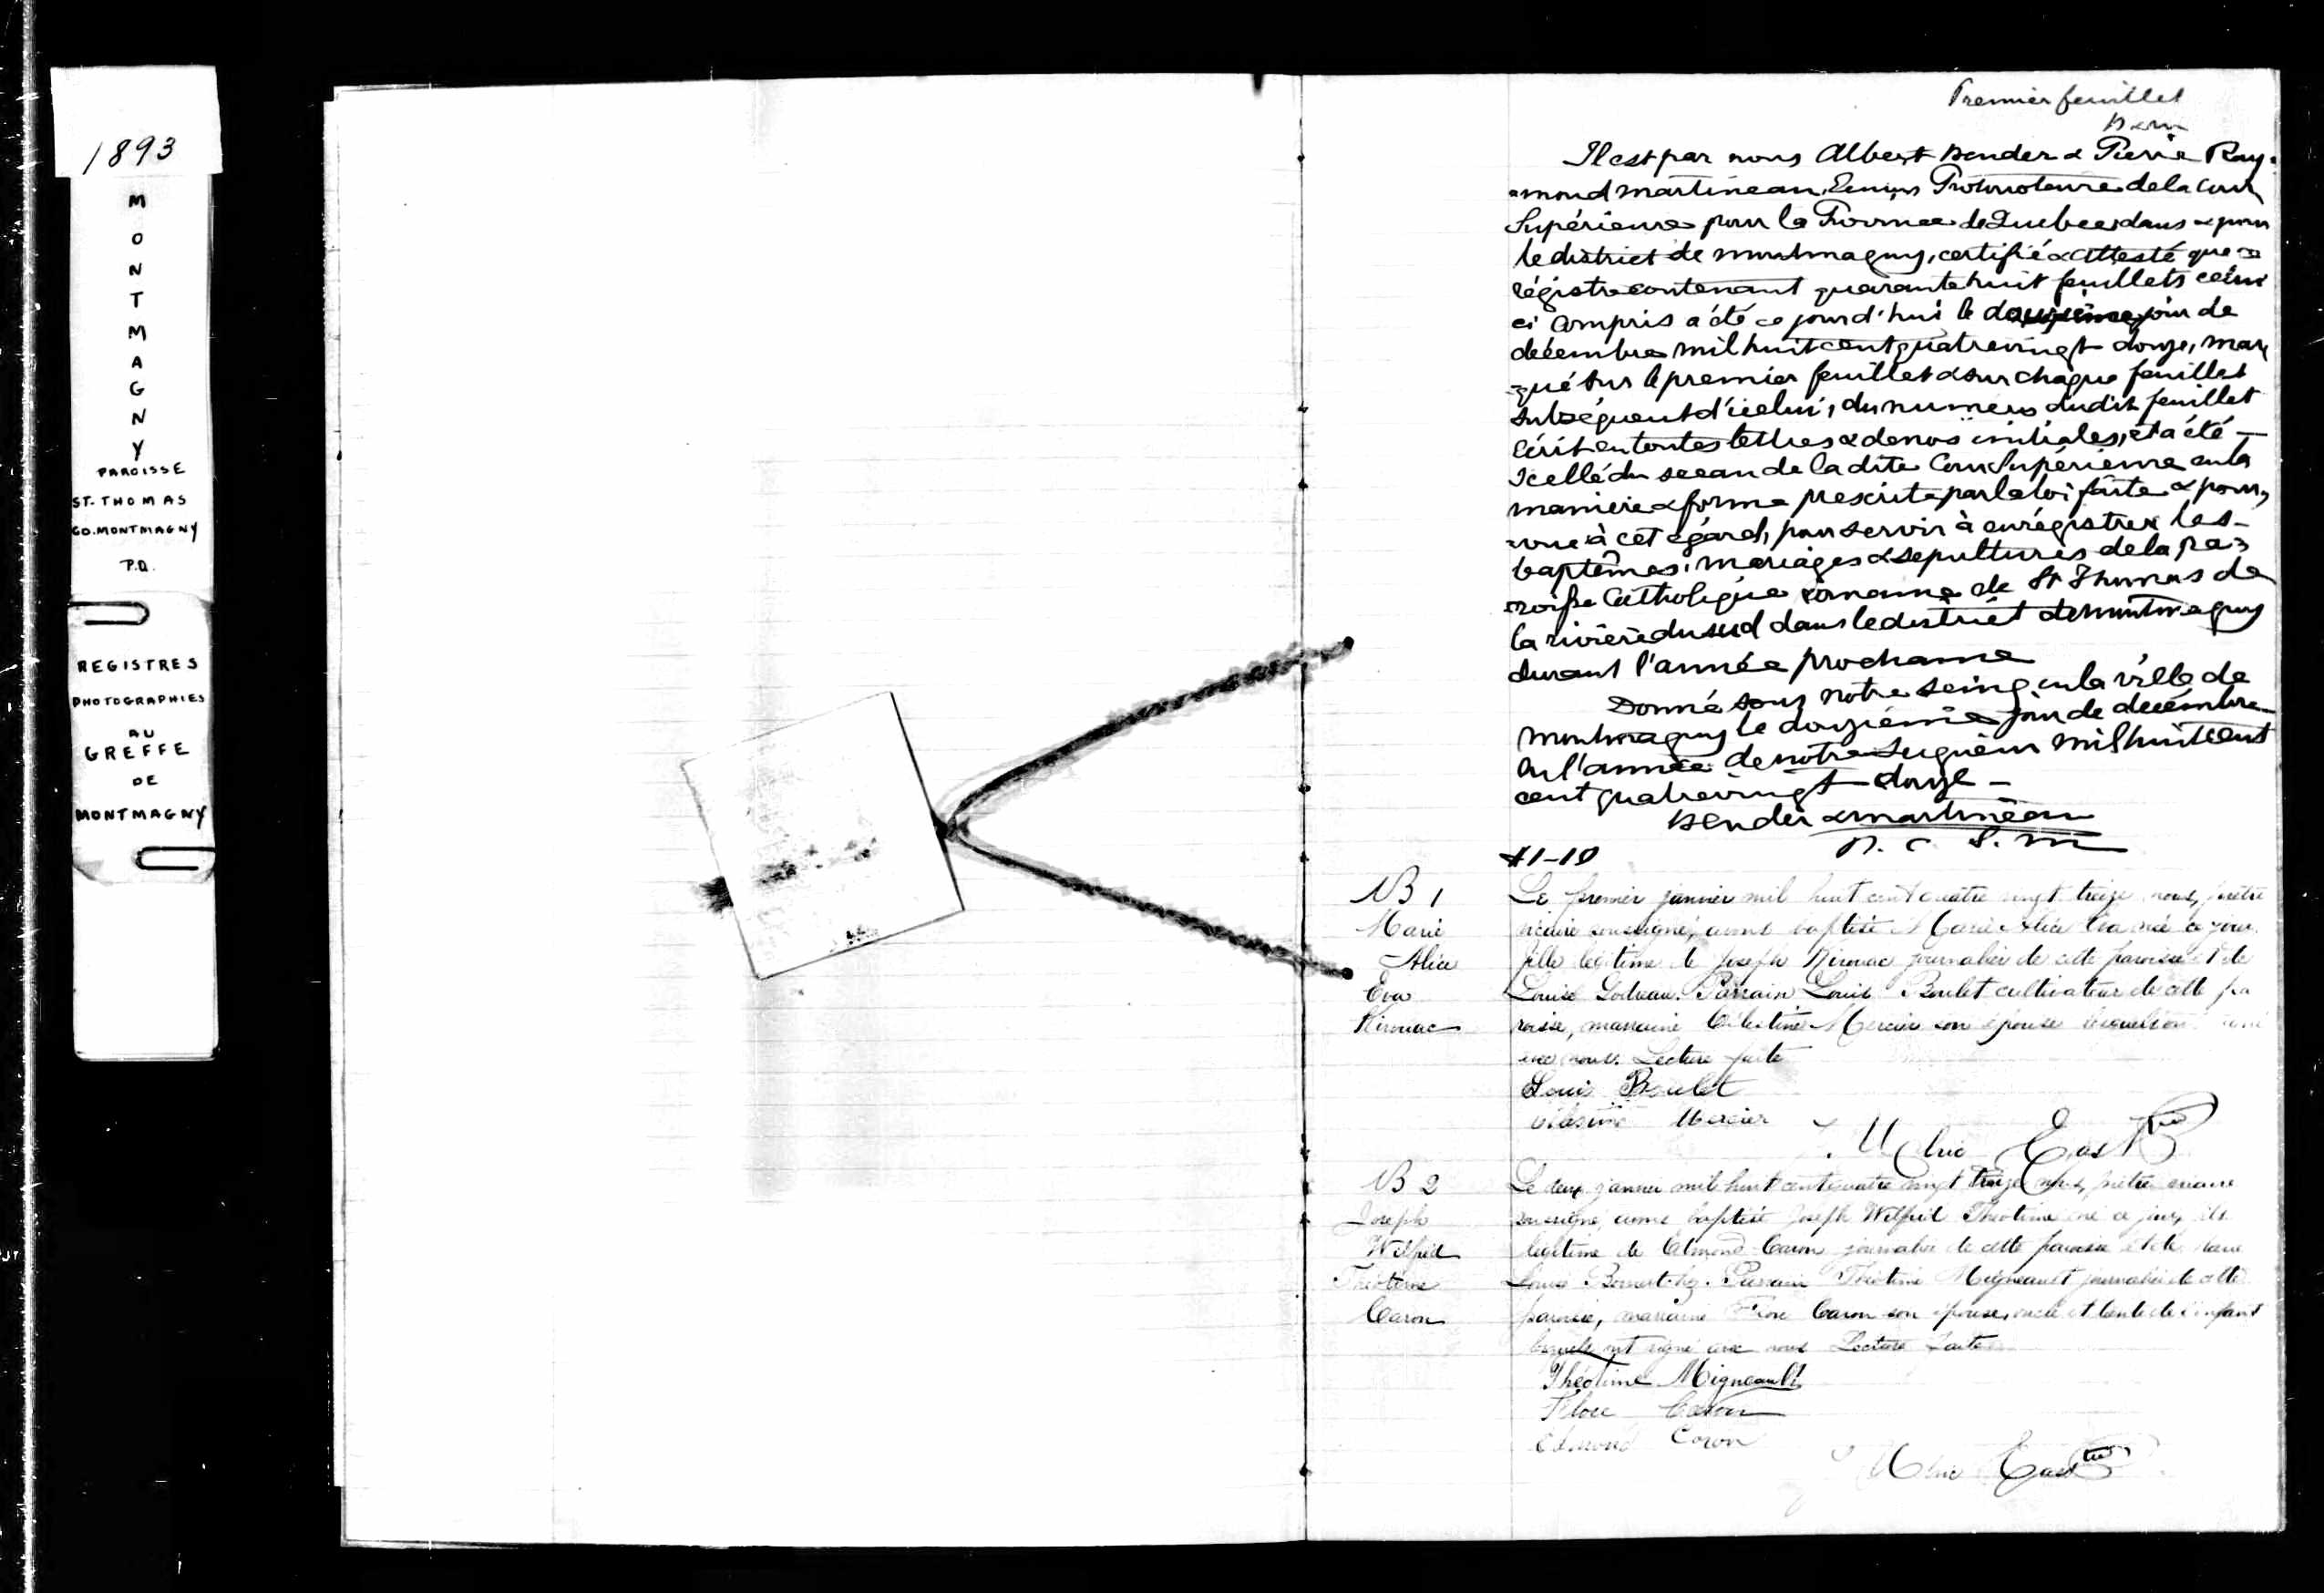 1893
MONTMAGNY
PAROISSE
ST-THOMAS
CO. MONTMAGNY
P.Q.
REGISTRES
PHOTOGRAPHIES
AU
GREFFE
DE
MONTMAGNY
Premier feuillet
Il est par nous Albert Bender & Pierre Ray-
mond Martineau, Ecuiers Protonotaire de la Cour
Supérieure pour la Province de Québec, dans & pour
le district de Montmagny, certifié & attesté que ce
régistre contenant quarante huit feuillets celui
ci compris a été ce jourd'hui le jour de
décembre mil huit cent quatrevingt douze, mar
-qué sur le premier feuillet & sur chaque feuillet
subséquent d'icelui, du numero dudit feuillet
écrit en toutes lettres & de nos initiales, et a été —
scellé du sceau de la dite Cour Supérieure en la
manière & forme prescrite par la loi faite & pour,
-vue à cet égard, pour servir à enrégistrer les -
baptêmes, mariages & sepultures de la pa=
roisse Catholique romaine de St Thomas de
la rivière du sud dans le district de Montmagny
durant l'année prochaine
Donné sous notre seing, en la ville de
Montmagny le douzième jour de décembre
en l'année de notre Seigneur mil huit cent
cent quatrevingt douze —
Bender & Martineau
P. C. S. M
#1-10
B 1
Marie
Alice
Eva
Kirouac
Le premier janvier mil huit cent quatre vingt treize nous, prêtre
vicaire soussigné, avons baptisé Marie Alice Eva née ce jour
fille légitime de Joseph Kirouac journalier de cette paroisse et de
Louise Parrain Louis Boulet cultivateur de cette pa
roisse, marraine Célestine Mercier son épouse lesquels ont signé
avec nous. Lecture faite
Louis Boulet
Mercier
Ulric East
B 2
Joseph
Wilfrid
Théotime
Caron
Le deux janvier mil huit cent quatre vingt treize nous, prêtre vicaire
soussigné, avons baptisé Joseph Wilfrid Théotime né ce jour, fils
légitime de Edmond Caron journalier de cette paroisse et de
Parrain Théotime Migneault journalier de cette
paroisse, marraine Flore Caron son épouse, oncle et tante de l'enfant
lesquels ont signé avec nous Lecture faite
Théotime Migneault
Flore Caron
Edmond Caron
Ulric East